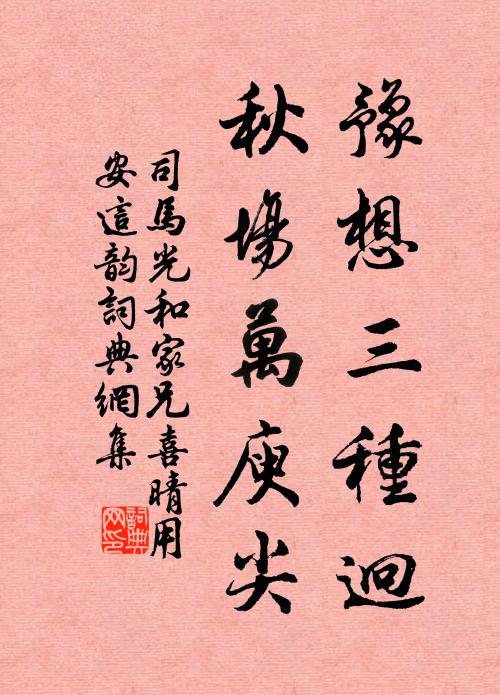 豫想三種迴
秋場萬庾尖
司馬光和家兄喜晴用
安這韵詞典網集
詞典網印